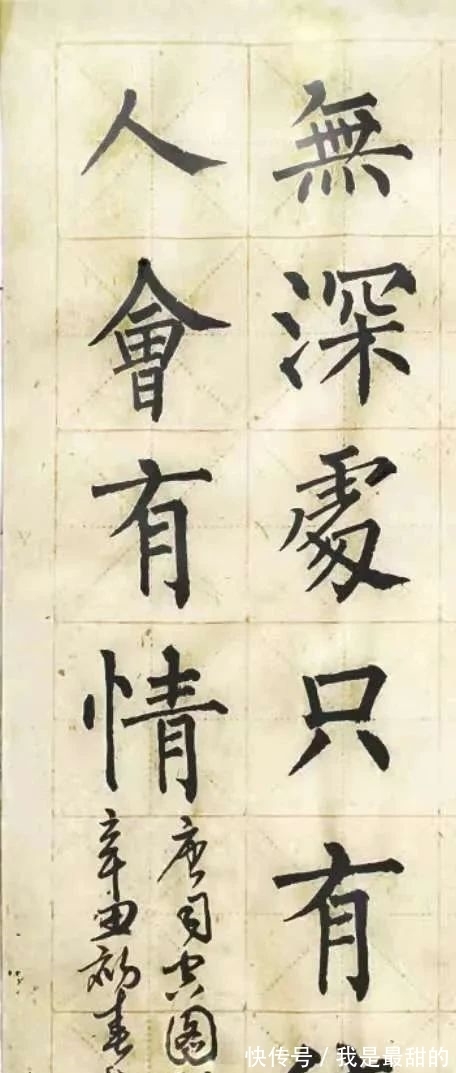 無深處只有
人會有情
唐司空圖
辛丑初春
快传号/我是最甜的